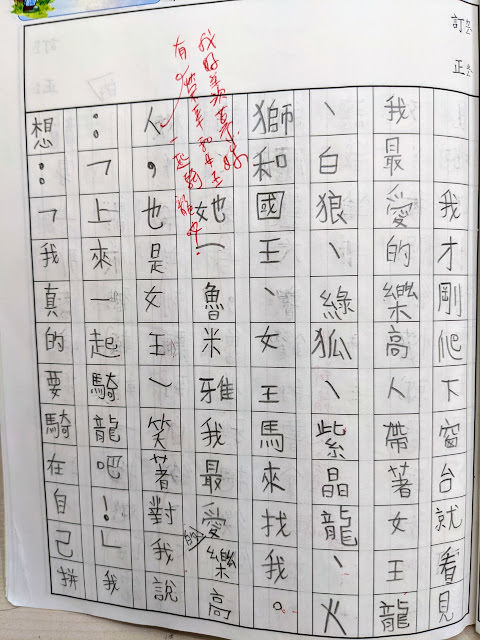 訂
正
我才剛爬下窗台就看見
我最愛的樂高人帶著女王龍
、白狼、綠狐、紫晶龍、火
獅和國王、女王馬來找我。
她—魯米雅我最愛的樂高
人,也是女王—笑著對我說
:「上來一起騎龍吧!」我
想:「我真的要騎在自己拼
我好羨慕
有榮幸和女王
一起騎龍